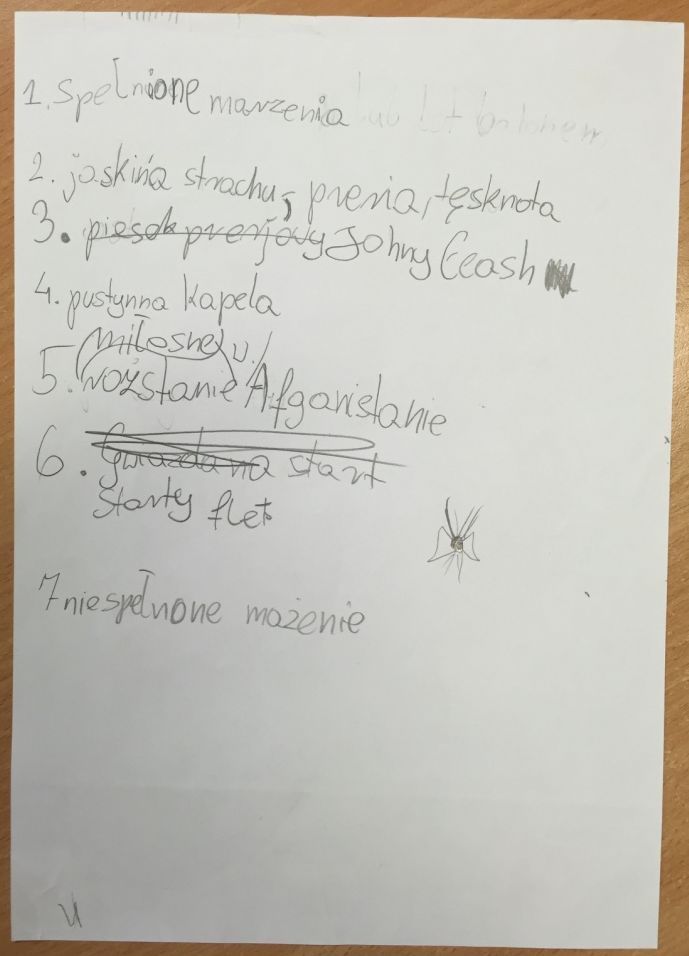 1. spełnione marzenia lub lot balonem
2. jaskinia strachu, preria, tęsknota
3. piesek preriowy Johny Ceash
4. pustynna kapela
miłosne w
5. rozstanie Afganistanie
6. Gwiazda na start
Starty flet
7 niespełnone mażenie